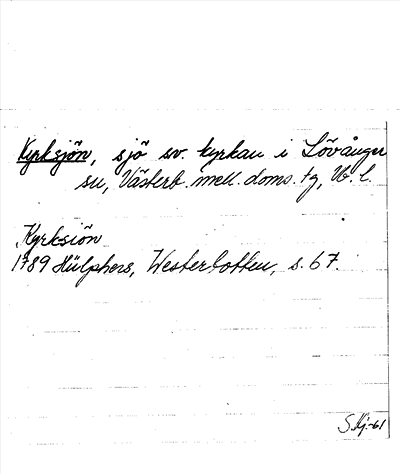 Kyrksjön, sjö sv. kyrkan i Lövånger
sn, Västerb. mell. doms. tg, Vb. l.
Kyrksiön
1789 Hülphers, Westerbotten, s. 67.
S.Hj.-61